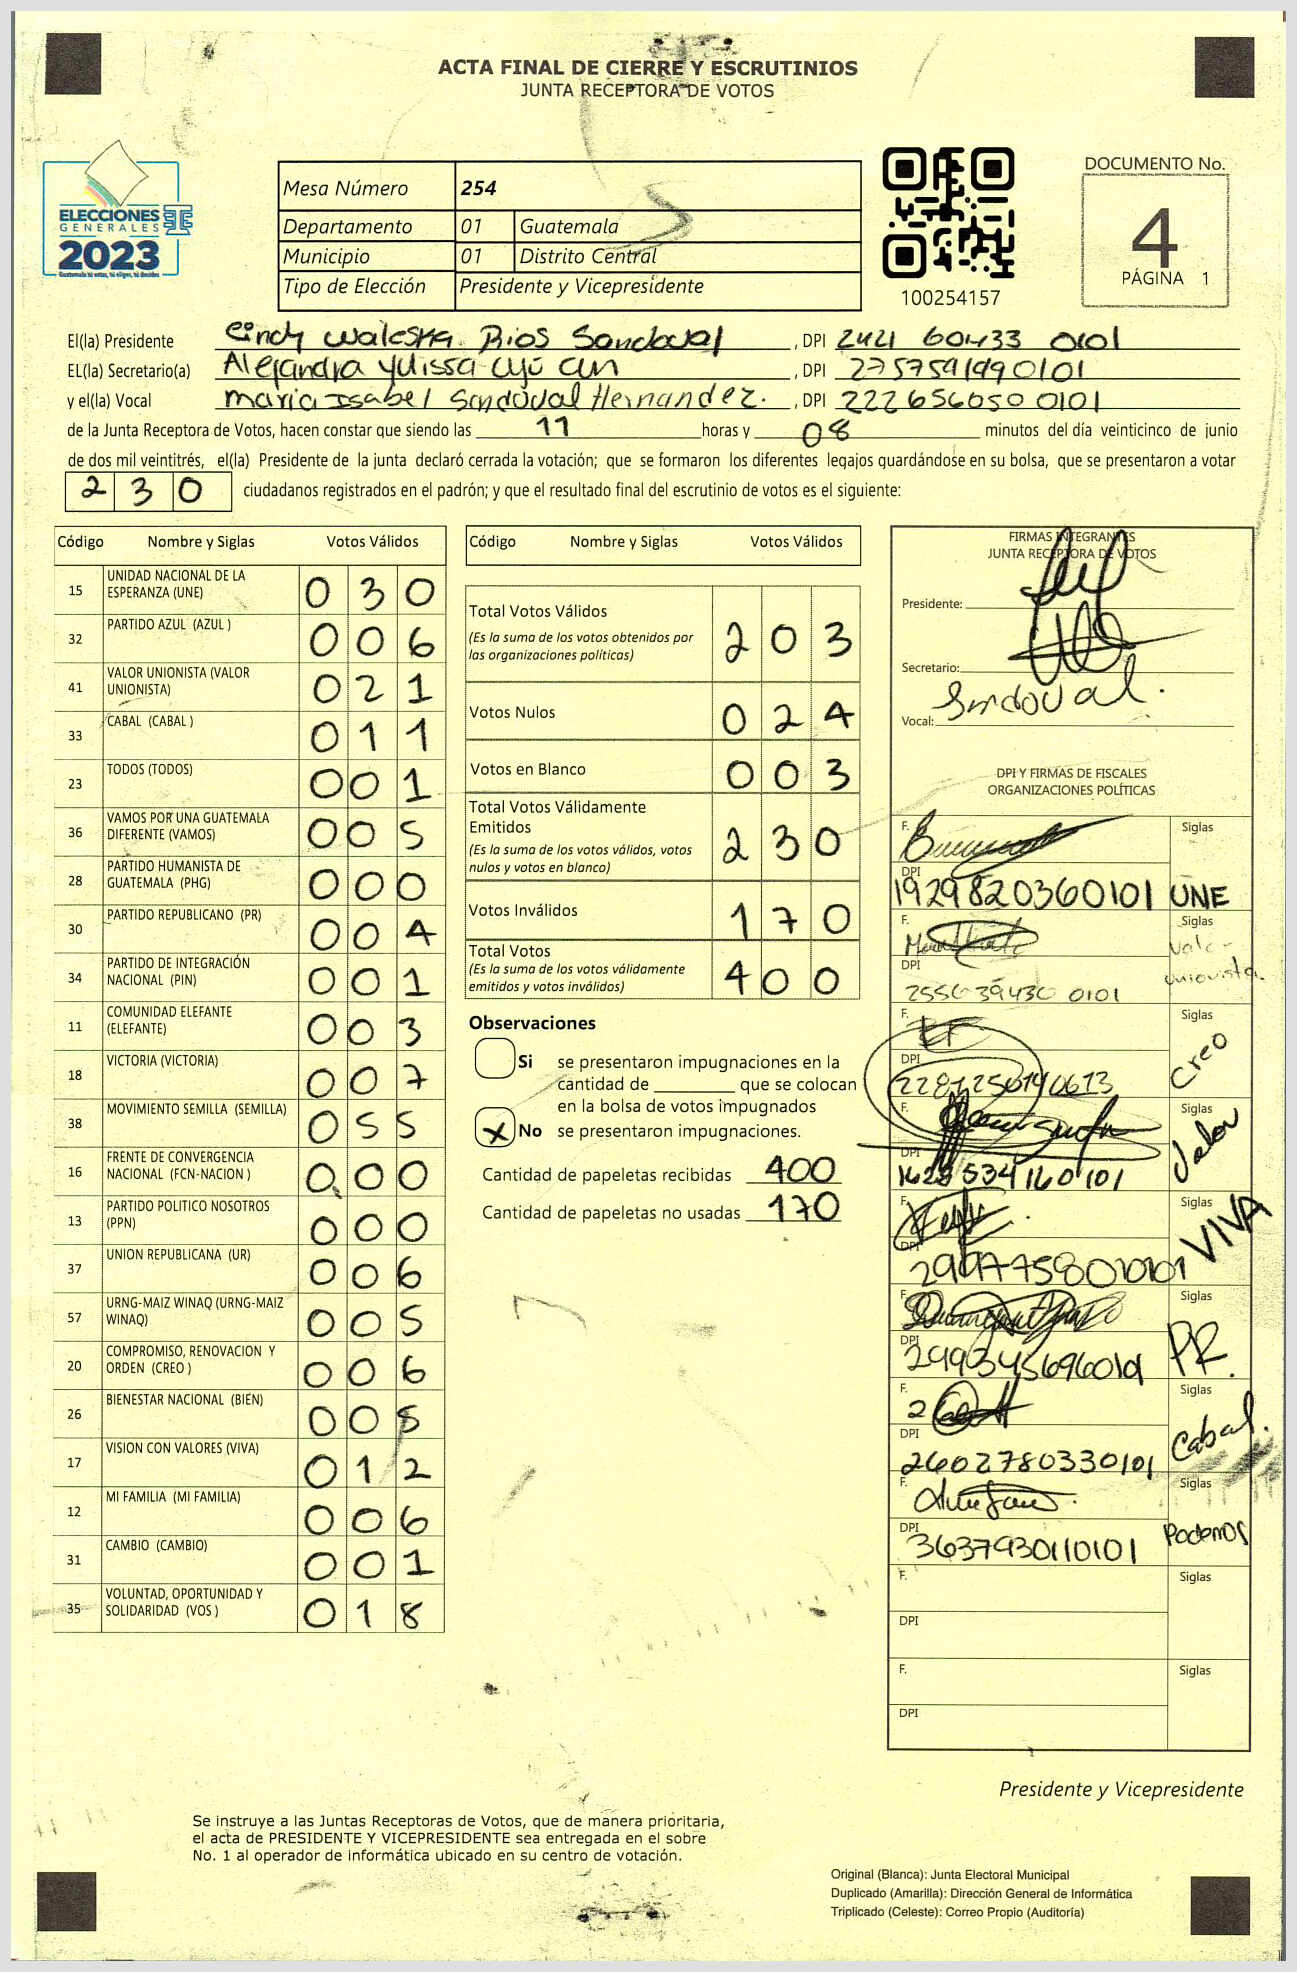 ACTA FINAL DE CIERRE Y ESCRUTINIOS
JUNTA RECEPTORA DE VOTOS
ELECCIONES
GENERALES
2023
Mesa Número 254
Departamento 01 Guatemala
Municipio 01 Distrito Central
Tipo de Elección Presidente y Vicepresidente
100254157
DOCUMENTO No.
4
PÁGINA 1
El(la) Presidente Cindy Waleska Rios Sandoval, DPI 2421 60433 0101
EL(la) Secretario(a) Alejandra Yulissa Cujú Cun, DPI 2757591990101
y el(la) Vocal maria Isabel Sandoval Hernandez., DPI 222656050 0101
de la Junta Receptora de Votos, hacen constar que siendo las 17 horas y 08 minutos del día veinticinco de junio
de dos mil veintitrés, el(la) Presidente de la junta declaró cerrada la votación; que se formaron los diferentes legajos guardándose en su bolsa, que se presentaron a votar
230 ciudadanos registrados en el padrón; y que el resultado final del escrutinio de votos es el siguiente:
Código Nombre y Siglas Votos Válidos
15 UNIDAD NACIONAL DE LA ESPERANZA (UNE) 030
32 PARTIDO AZUL (AZUL ) 006
41 VALOR UNIONISTA (VALOR UNIONISTA) 021
33 CABAL (CABAL ) 011
23 TODOS (TODOS) 001
36 VAMOS POR UNA GUATEMALA DIFERENTE (VAMOS) 005
28 PARTIDO HUMANISTA DE GUATEMALA (PHG) 000
30 PARTIDO REPUBLICANO (PR) 004
34 PARTIDO DE INTEGRACIÓN NACIONAL (PIN) 001
11 COMUNIDAD ELEFANTE (ELEFANTE) 003
18 VICTORIA (VICTORIA) 007
38 MOVIMIENTO SEMILLA (SEMILLA) 055
16 FRENTE DE CONVERGENCIA NACIONAL (FCN-NACION ) 000
13 PARTIDO POLITICO NOSOTROS (PPN) 000
37 UNION REPUBLICANA (UR) 006
57 URNG-MAIZ WINAQ (URNG-MAIZ WINAQ) 005
20 COMPROMISO, RENOVACION Y ORDEN (CREO ) 006
26 BIENESTAR NACIONAL (BIEN) 005
17 VISION CON VALORES (VIVA) 012
12 MI FAMILIA (MI FAMILIA) 006
31 CAMBIO (CAMBIO) 001
35 VOLUNTAD, OPORTUNIDAD Y SOLIDARIDAD (VOS ) 018
Código Nombre y Siglas Votos Válidos
Total Votos Válidos 203
(Es la suma de los votos obtenidos por
las organizaciones políticas)
Votos Nulos 024
Votos en Blanco 003
Total Votos Válidamente
Emitidos 230
(Es la suma de los votos válidos, votos
nulos y votos en blanco)
Votos Inválidos 170
Total Votos 400
(Es la suma de los votos válidamente
emitidos y votos inválidos)
Observaciones
Si se presentaron impugnaciones en la
cantidad de ________ que se colocan
en la bolsa de votos impugnados
X No se presentaron impugnaciones.
Cantidad de papeletas recibidas 400
Cantidad de papeletas no usadas 170
FIRMAS INTEGRANTES
JUNTA RECEPTORA DE VOTOS
Presidente:
Secretario:
Vocal: Sandoval.
DPI Y FIRMAS DE FISCALES
ORGANIZACIONES POLÍTICAS
F. Siglas
DPI 1929820360101 UNE
F. Siglas
DPI Valor unionista.
F. Siglas
DPI Creo
F. Siglas
DPI 1623534160101 Valor
F. Siglas
DPI VIVA
F. Siglas
DPI PR.
F. Siglas
DPI 2602780330101 Cabal.
F. Siglas
DPI 3637930110101 Podemos
F. Siglas
DPI
F. Siglas
DPI
Presidente y Vicepresidente
Se instruye a las Juntas Receptoras de Votos, que de manera prioritaria,
el acta de PRESIDENTE Y VICEPRESIDENTE sea entregada en el sobre
No. 1 al operador de informática ubicado en su centro de votación.
Original (Blanca): Junta Electoral Municipal
Duplicado (Amarilla): Dirección General de Informática
Triplicado (Celeste): Correo Propio (Auditoría)